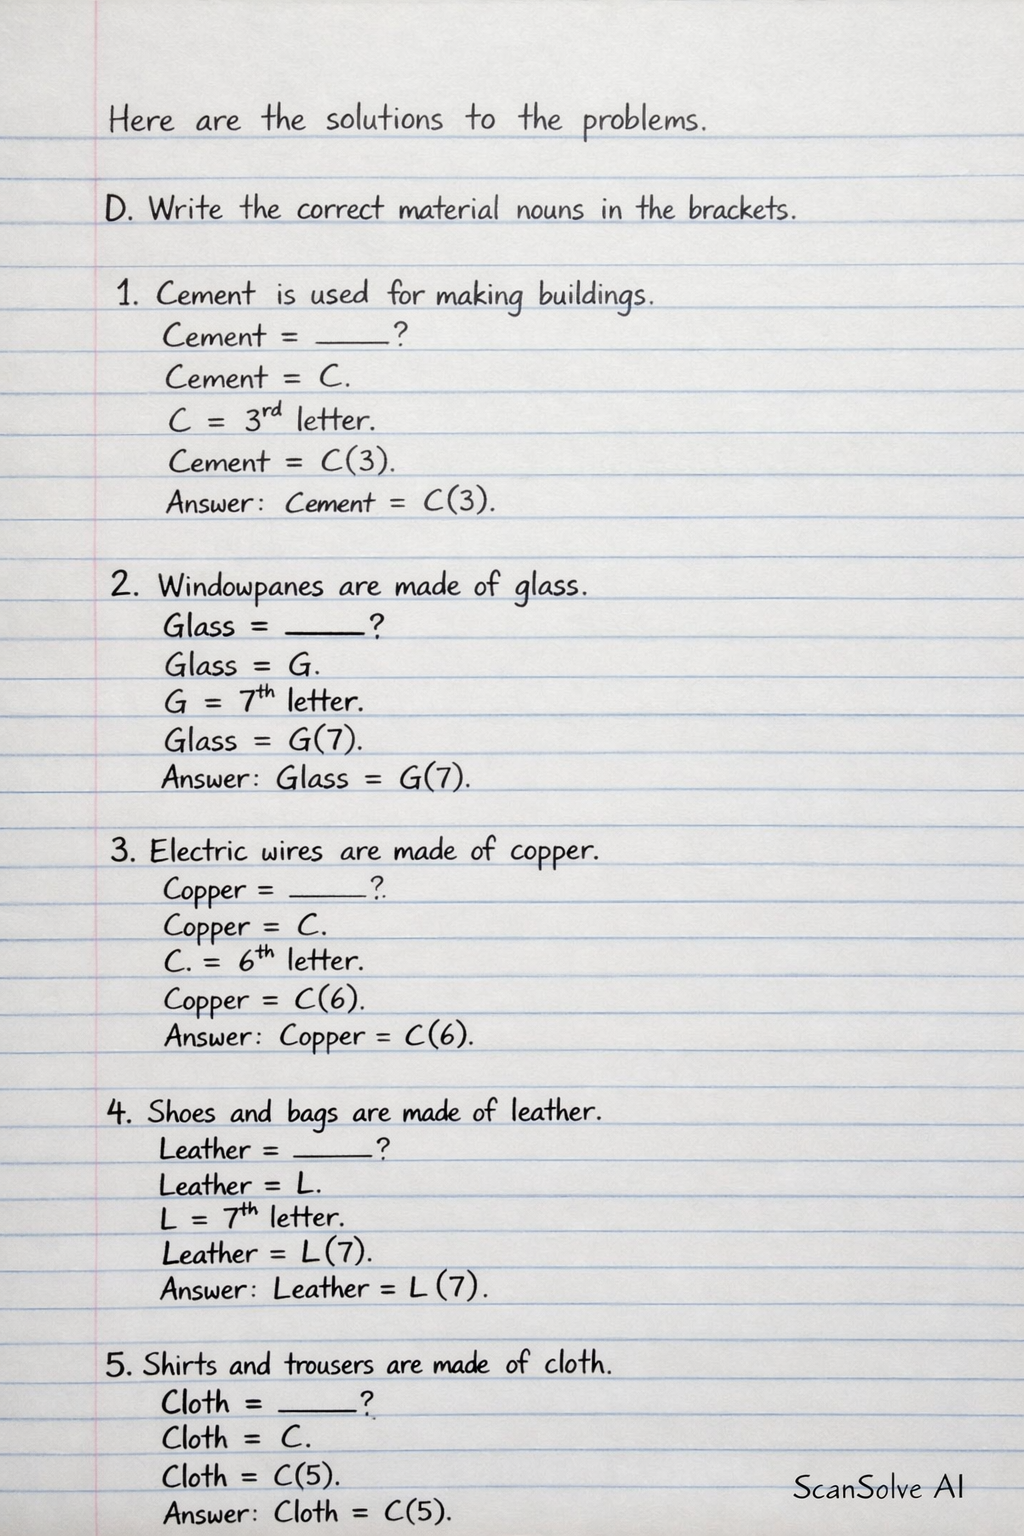 Here are the solutions to the problems.
D. Write the correct material nouns in the brackets.
1. Cement is used for making buildings.
Cement = _____?
Cement = C.
C = 3rd letter.
Cement = C(3).
Answer: Cement = C(3).
2. Windowpanes are made of glass.
Glass = _____?
Glass = G.
G = 7th letter.
Glass = G(7).
Answer: Glass = G(7).
3. Electric wires are made of copper.
Copper = _____?
Copper = C.
C. = 6th letter.
Copper = C(6).
Answer: Copper = C(6).
4. Shoes and bags are made of leather.
Leather = _____?
Leather = L.
L = 7th letter.
Leather = L(7).
Answer: Leather = L (7).
5. Shirts and trousers are made of cloth.
Cloth = _____?
Cloth = C.
Cloth = C(5).
Answer: Cloth = C(5).
ScanSolve AI